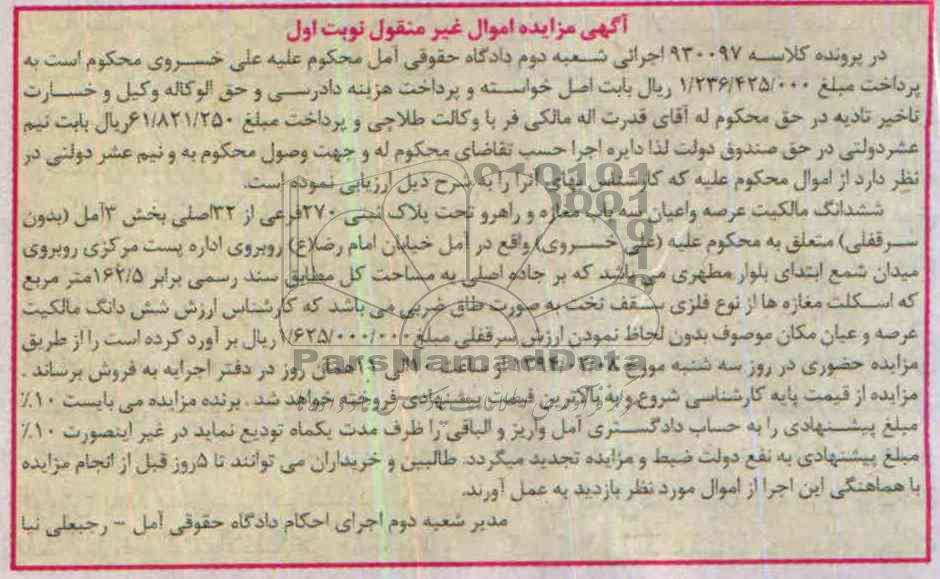 آگهی مزایده اموال غیر منقول نوبت اول
در پرونده کلاسه ۹۳۰۰۹۷ اجرائی شعبه دوم دادگاه حقوقی آمل محکوم علیه علی خسروی محکوم است به
پرداخت مبلغ ۱/۲۳۶/۴۲۵/۰۰۰ ریال بابت اصل خواسته و پرداخت هزینه دادرسی و حق الوکاله وکیل و خسارت
تاخیر تادیه در حق محکوم له آقای قدرت اله مالکی فر با وکالت طلاچی و پرداخت مبلغ ۶۱/۸۲۱/۲۵۰ریال بابت نیم
عشردولتی در حق صندوق دولت لذا دایره اجرا حسب تقاضای محکوم له و جهت وصول محکوم به و نیم عشر دولتی در
نظر دارد از اموال محکوم علیه که کارشناس بهای آنرا را به شرح ذیل ارزیابی نموده است.
ششدانگ مالکیت عرصه واعیان سه باب مغازه و راهرو تحت پلاک ثبتی ۲۷۰فرعی از ۳۲اصلی بخش ۳آمل (بدون
سرقفلی) متعلق به محکوم علیه (علی خسروی) واقع در آمل خیابان امام رضا(ع) روبروی اداره پست مرکزی روبروی
میدان شمع ابتدای بلوار مطهری می باشد که بر جاده اصلی به مساحت کل مطابق سند رسمی برابر ۱۶۲/۵متر مربع
که اسکلت مغازه ها از نوع فلزی سقف تخت به صورت طاق ضربی می باشد که کارشناس ارزش شش دانگ مالکیت
عرصه و عیان مکان موصوف بدون لحاظ نمودن ارزش سرقفلی مبلغ ۱/۶۲۵/۰۰۰/۰۰۰ریال بر آورد کرده است را از طریق
مزایده حضوری در روز سه شنبه مورخ از ساعت الی همان روز در دفتر اجرایه به فروش برساند .
مزایده از قیمت پایه کارشناسی شروع و به بالاترین قیمت پیشنهادی فروخته خواهد شد . برنده مزایده می بایست ۱۰٪
مبلغ پیشنهادی را به حساب دادگستری آمل واریز و الباقی را ظرف مدت یکماه تودیع نماید در غیر اینصورت ۱۰٪
مبلغ پیشنهادی به نفع دولت ضبط و مزایده تجدید میگردد. طالبین و خریداران می توانند تا ۵روز قبل از انجام مزایده
با هماهنگی این اجرا از اموال مورد نظر بازدید به عمل آورند.
مدیر شعبه دوم اجرای احکام دادگاه حقوقی آمل - رجبعلی نیا
ParsNamadData